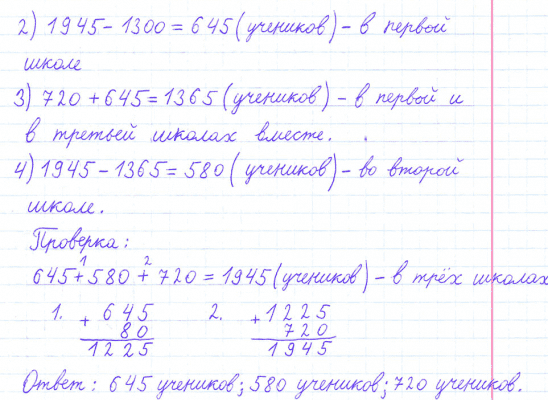 2) 1945 - 1300 = 645 (учеников) - в первой
школе
3) 720 + 645 = 1365 (учеников) - в первой и
в третьей школах вместе.
4) 1945 - 1365 = 580 (учеников) - во второй
школе.
Проверка:
1 2
645 + 580 + 720 = 1945 (учеников) - в трёх школах
1. + 645 2. + 1225
80 720
1225 1945
Ответ: 645 учеников; 580 учеников; 720 учеников.